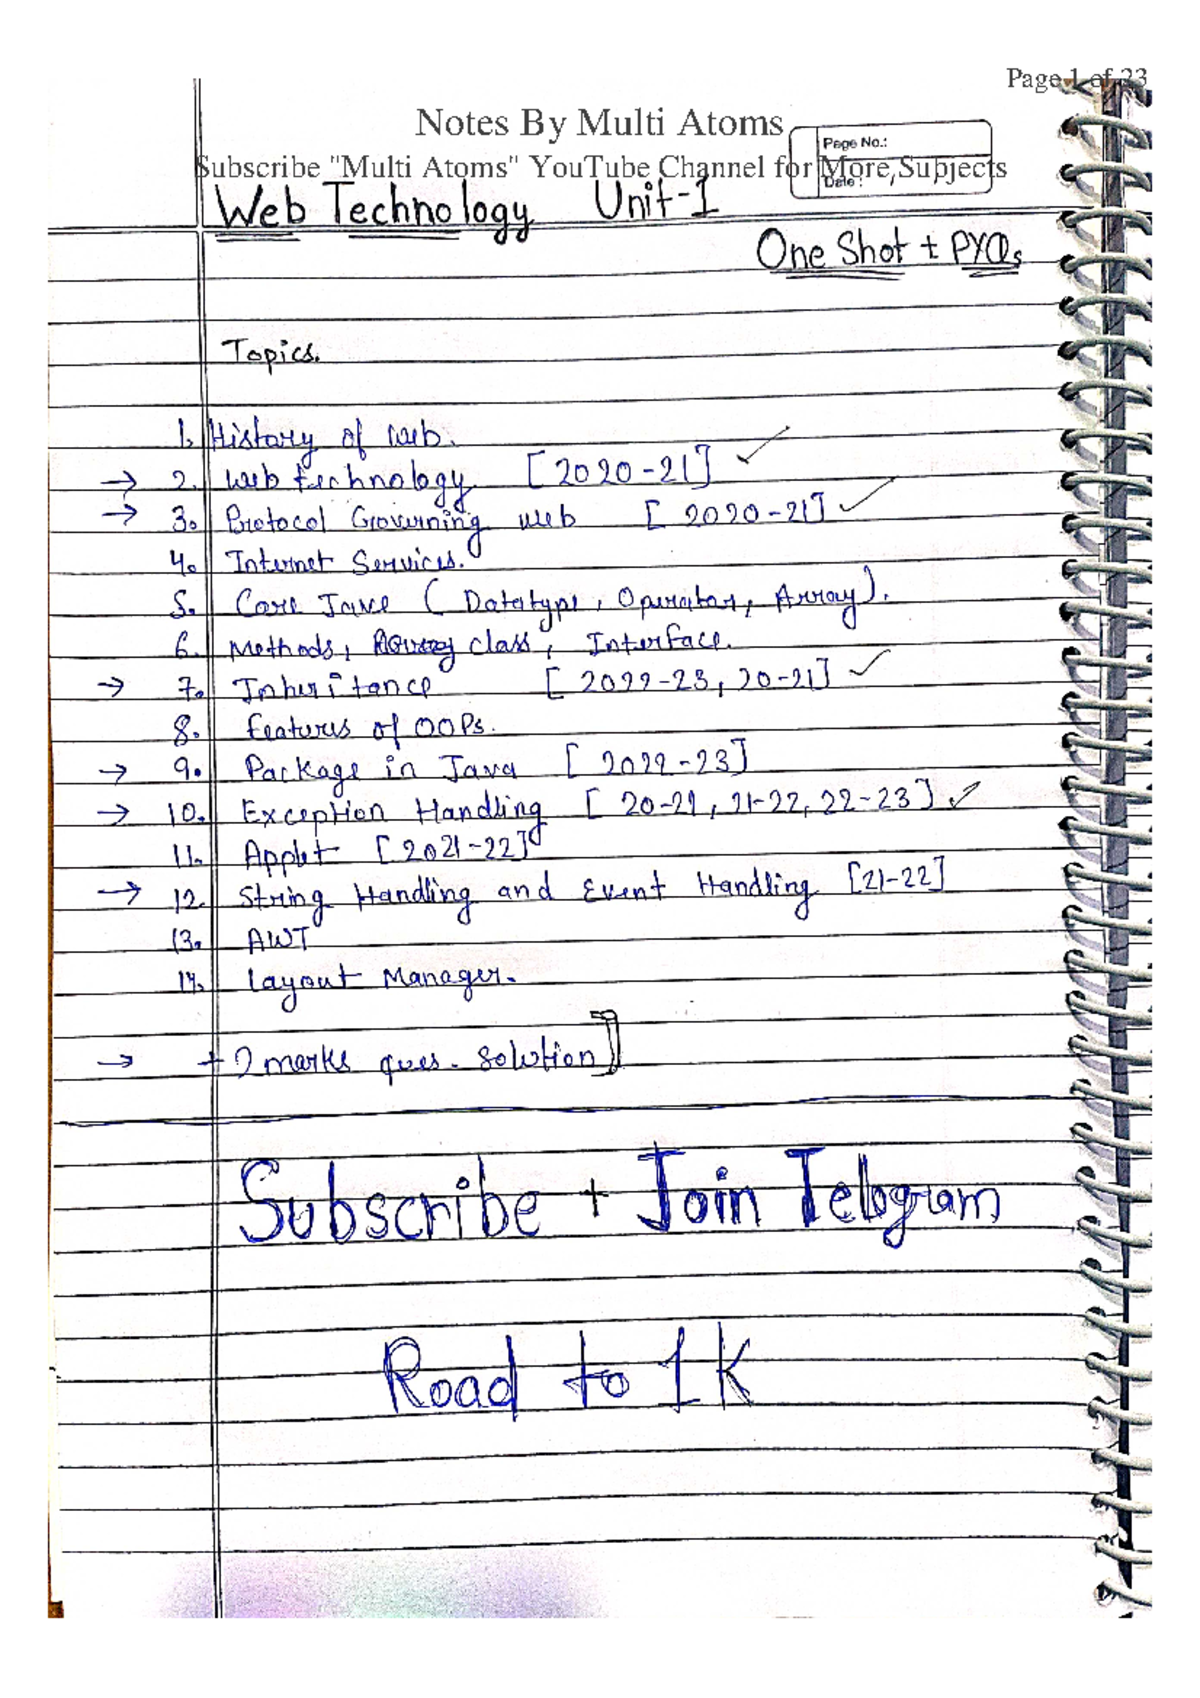 Page 1 of 23
Notes By Multi Atoms
Page No.:
Subscribe "Multi Atoms" YouTube Channel for More Subjects
Date:
Web Technology Unit-1
One Shot + PYQs
Topics.
1. History of web.
→ 2. Web technology [2020-21] ✓
→ 3. Protocol Governing web [2020-21] ✓
4. Internet Services.
5. Core Java (Datatype, Operator, Array).
6. Methods, class, Interface.
→ 7. Inheritance [2022-23, 20-21] ✓
8. Features of OOPs.
→ 9. Package in Java [2022-23]
→ 10. Exception Handling [20-21, 21-22, 22-23] ✓
11. Applet [2021-22]
→ 12. String Handling and Event Handling [21-22]
13. AWT
14. Layout Manager.
→ + 2 marks ques. Solution]
Subscribe + Join Telegram
Road to 1K